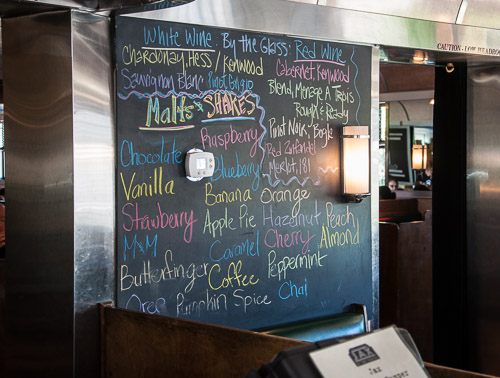 White Wine · By the Glass: Red Wine
Chardonnay, Hess / Kenwood
Sauvignon Blanc Pinot Grigio
Cabernet, Kenwood
Blend, Menage A Trois
Pinot Noir, Bogle
Red Zinfandel
Merlot, 181
Malts & SHAKES
Raspberry
Chocolate Blueberry
Vanilla Banana Orange
Strawberry Apple Pie Hazelnut Peach
M&M Caramel Cherry Almond
Butterfinger Coffee Peppermint
Oreo Pumpkin Spice Chai
CAUTION - LOW HEADROOM
JAX
Jax